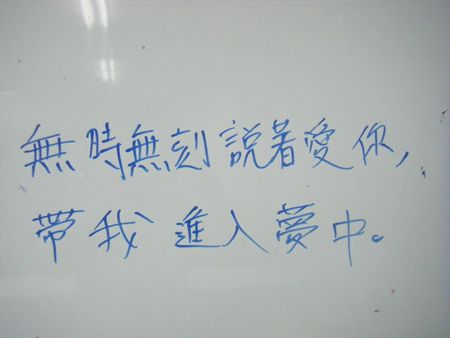 無時無刻說著愛你,
帶我進入夢中。